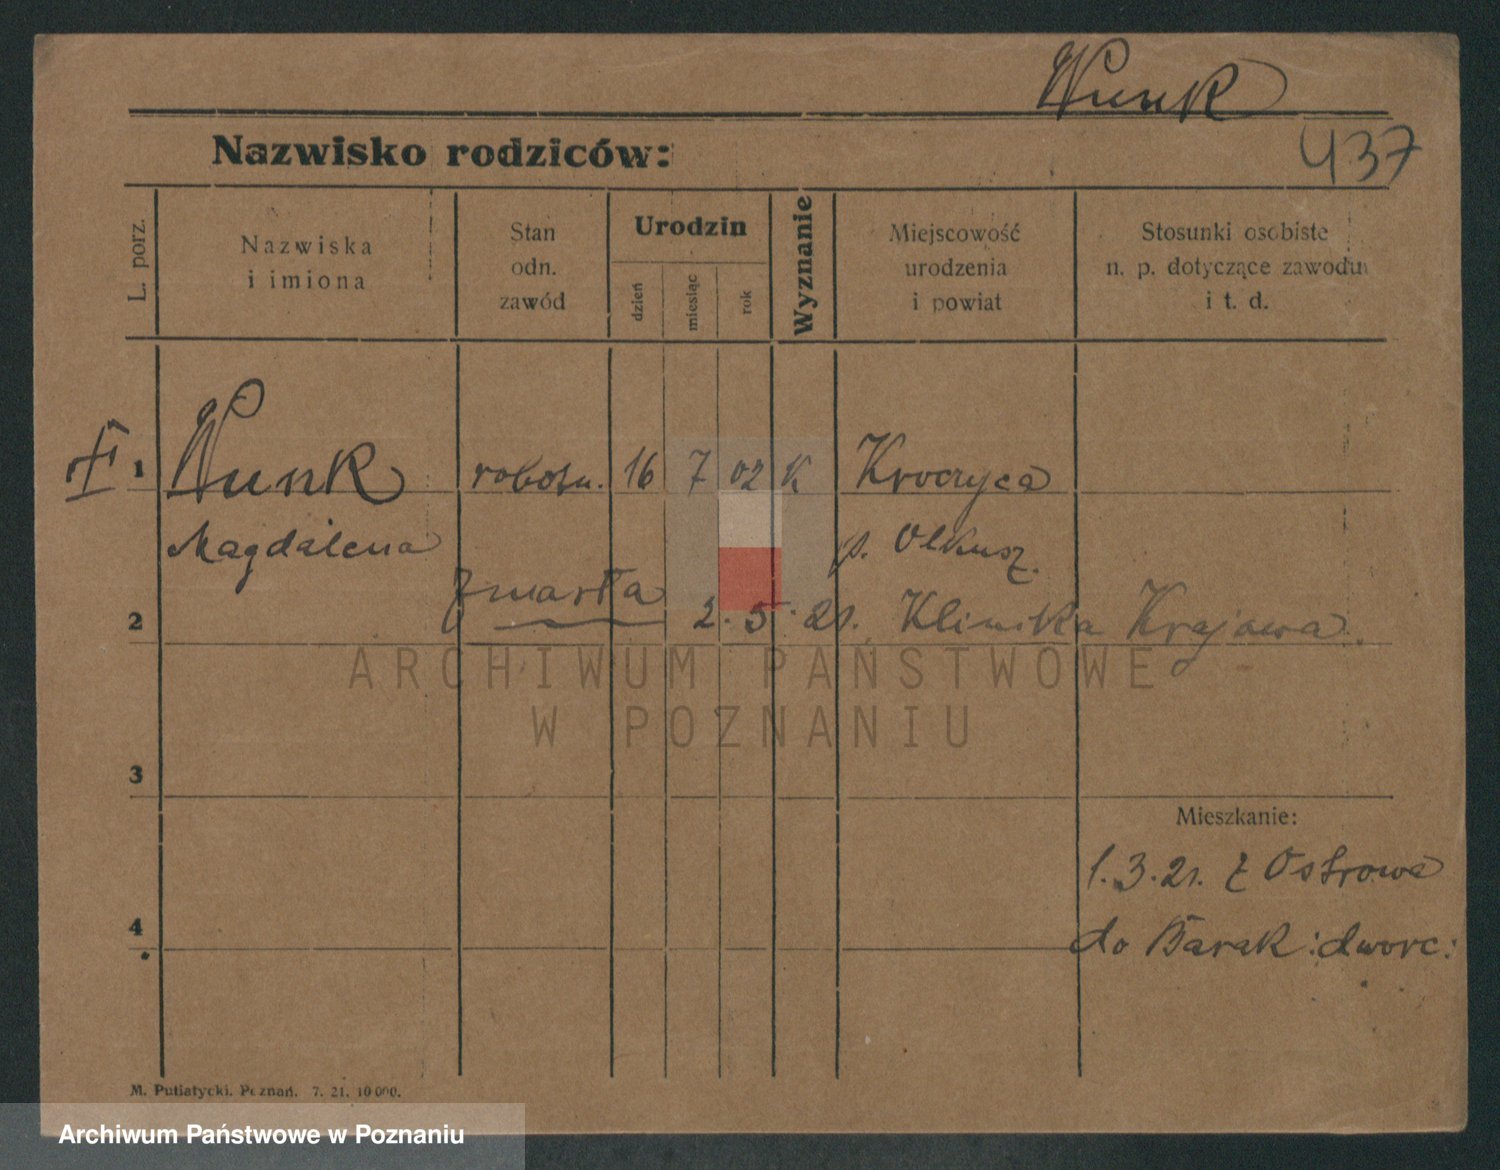 Wunk
437
Nazwisko rodziców:
L. porz.
Nazwiska
i imiona
Stan
odn.
zawód
Urodzin
dzień
miesiąc
rok
Wyznanie
Miejscowość
urodzenia
i powiat
Stosunki osobiste
n. p. dotyczące zawodu
i t. d.
1 Wunk robotn. 16 7 02 K Kroczyce
Magdalena p. Olkusz.
zmarła 2.5.21. Klinika Krajowa.
2
ARCHIWUM PAŃSTWOWE
W POZNANIU
3
Mieszkanie:
1.3.21. z Ostrowa
4 do Barak: dworc:
M. Putiatycki. Poznań. 7. 21. 10 000.
Archiwum Państwowe w Poznaniu